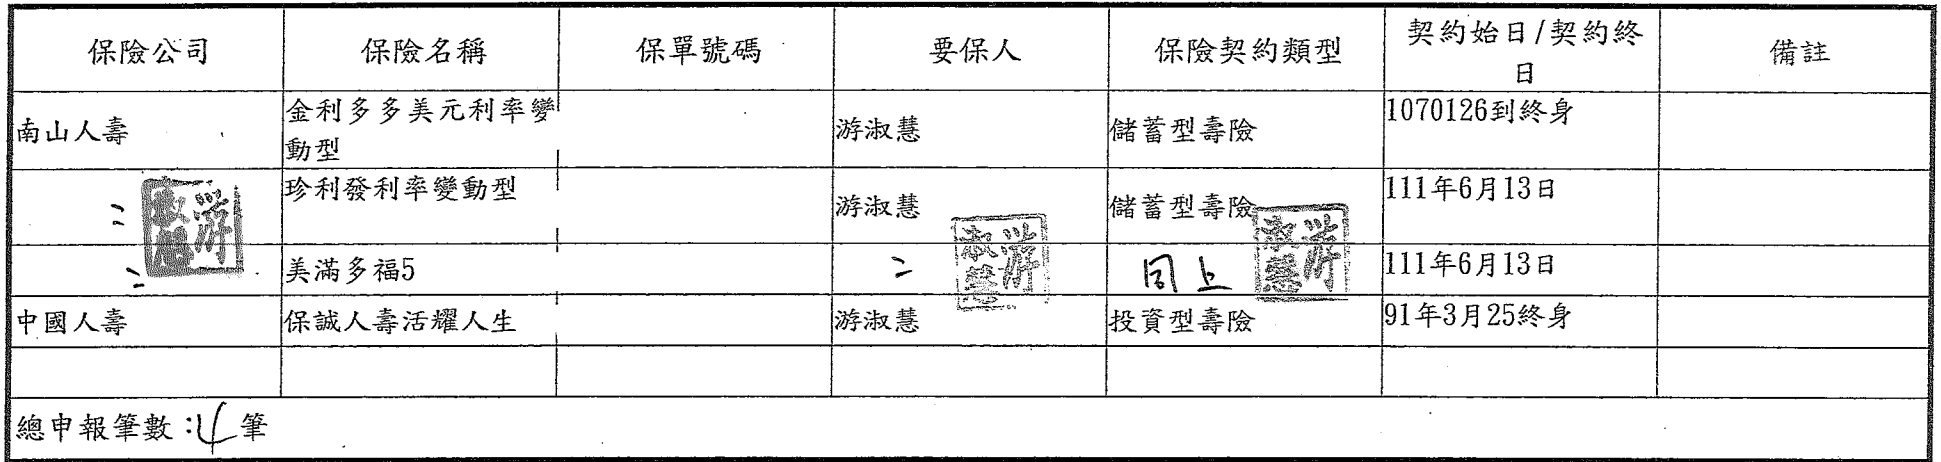 保險公司 保險名稱 保單號碼 要保人 保險契約類型 契約始日/契約終日 備註
南山人壽 金利多多美元利率變動型 游淑慧 儲蓄型壽險 1070126到終身
〃 珍利發利率變動型 游淑慧 儲蓄型壽險 111年6月13日
〃 美滿多福5 〃 同上 111年6月13日
中國人壽 保誠人壽活耀人生 游淑慧 投資型壽險 91年3月25終身
總申報筆數:4筆
游淑慧
游淑慧
游淑慧